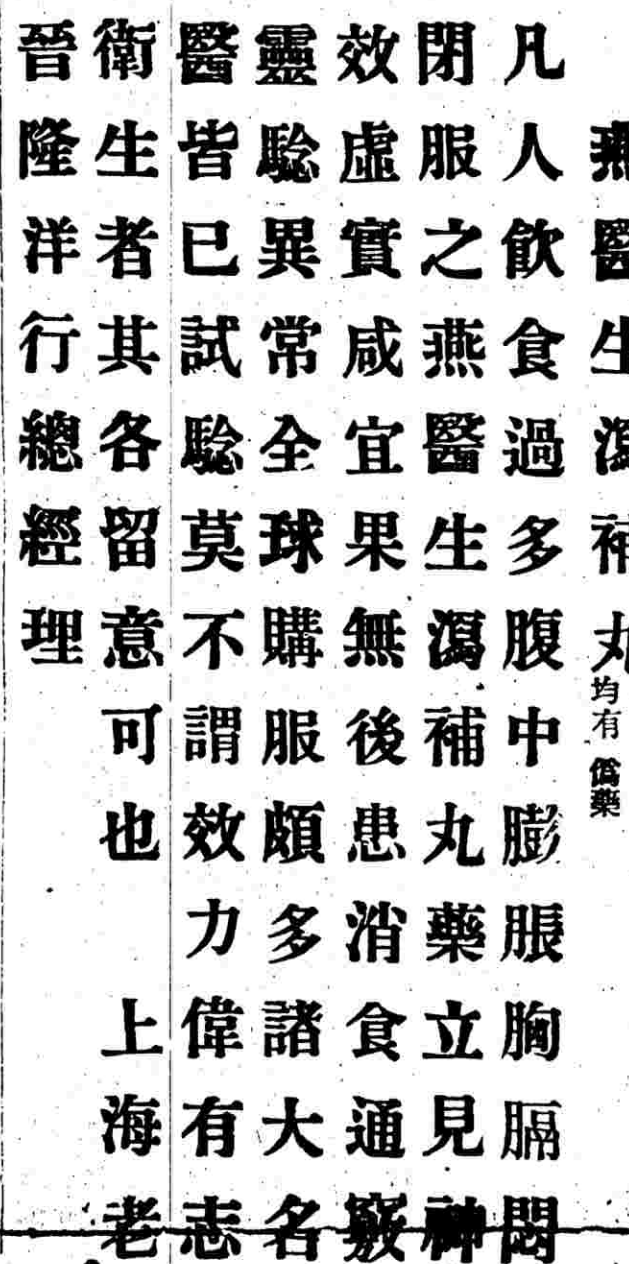 燕醫生瀉補丸均有僞藥
凡人飲食過多腹中膨脹胸膈悶
閉服之燕醫生瀉補丸藥立見神
效虛實咸宜果無後患消食通竅
靈騐異常全球購服頗多諸大名
醫皆已試騐莫不謂效力偉有志
衛生者其各留意可也　上海老
晉隆洋行總經理